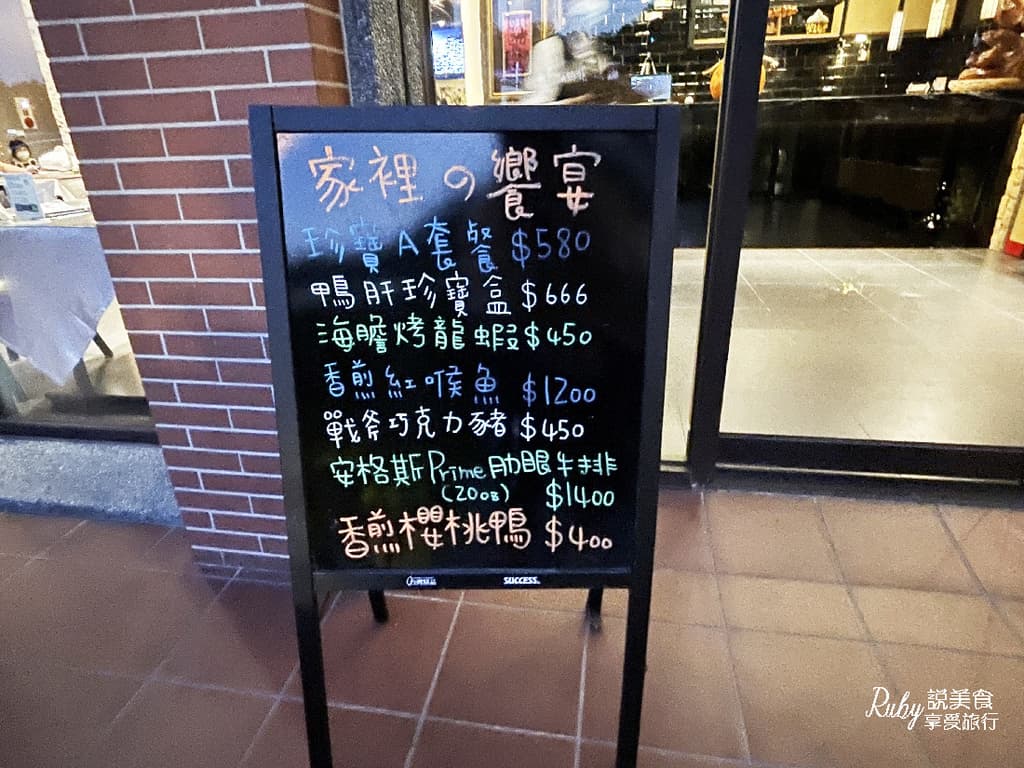 家裡の饗宴
珍寶A套餐 $580
鴨肝珍寶盒 $666
海膽烤龍蝦 $450
香煎紅喉魚 $1200
戰斧巧克力豬 $450
安格斯Prime肋眼牛排
(20oz) $1400
香煎櫻桃鴨 $400
SUCCESS
Ruby 說美食
享愛旅行